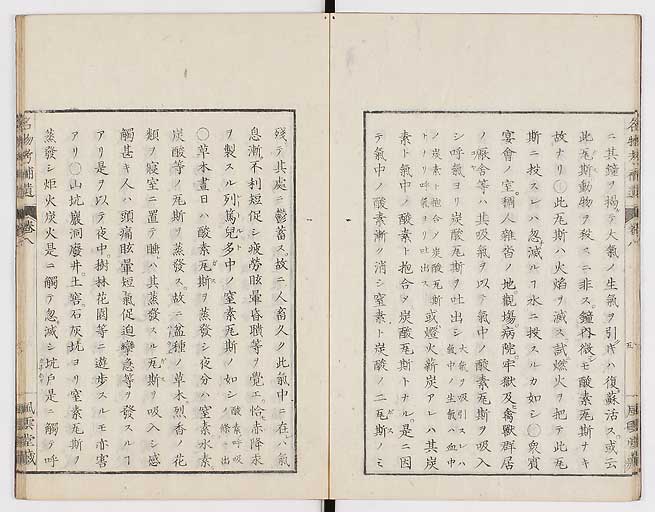 ニ其鐘ヲ揭テ大氣ノ生氣ヲ引ケハ復蘇活ス。或云
此瓦斯動物ヲ殺スニ非ス。鐘內微シモ酸素瓦斯ナキ
故ナリ〇此瓦斯ハ火焰ヲ滅ス試燃火ヲ把テ此瓦
斯ニ投スレハ忽滅ルヿ水ニ投スルカ如シ〇衆賓
宴會ノ室。稠人雜沓ノ地觀場病院。牢獄及禽獸群居
ノ厩舍等ハ其吸氣ヲ以テ氣中ノ酸素瓦斯ヲ吸入
シ呼氣ヨリ炭酸瓦斯ヲ吐出シ 大氣ヲ吸引スレハ氣中ノ生氣ハ血中
ノ炭素ト抱合ノ炭酸瓦斯トナリ呼氣ヨリ吐出ス 或燈火薪炭アレハ其炭
素ト氣中ノ酸素ト抱合ヲ炭酸瓦斯トナル。是ニ因
テ氣中ノ酸素漸ク消シ窒素ト炭酸ノ二瓦斯ノミ
名物考補遺
卷八
風雲堂藏
殘テ其處ニ鬱蓄ス。故ニ人畜久ク此氣中ニ在ハ氣
息漸不利短促シ疲勞眩暈昏瞶等ヲ覺エ、恰赤降汞
ヲ製スル列篤兒多中ノ窒素瓦斯ノ如シ 酸素呼吸ノ條ニ出
〇草木晝日ハ酸素瓦斯ヲ蒸發シ夜分ハ窒素水素
炭酸等ノ瓦斯ヲ蒸發ス。故ニ盆種ノ草木、烈香ノ花
類ヲ寢室ニ置テ睡ハ其蒸發スル瓦斯ヲ吸入シ感
觸甚キ人ハ頭痛眩暈短氣促迫攣急等ヲ發スルヿ
アリ是ヲ以テ夜中。樹林花園等ニ遊步スルモ亦害
アリ〇山坑巖洞廢井土窖石灰坑ヨリ窒素瓦斯ヲ
蒸發シ炬火炭火是ニ觸テ忽滅シ坑戶是ニ觸テ呼